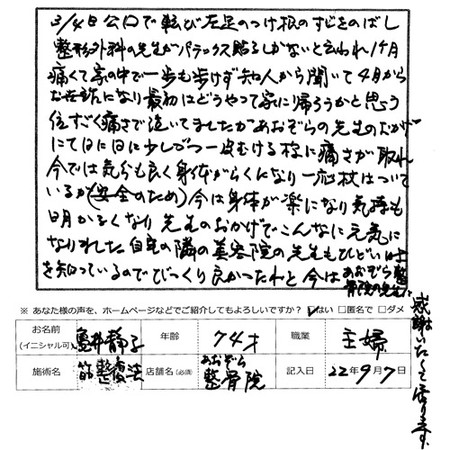 3/4日 公口で転び左足のつけ根のすじをのばし
整形外科の先生がパテックス貼るしかないと云われ1ヶ月
痛くて家の中で一歩も歩けず知人から聞いて4月から
お世話になり最初はどうやって家に帰ろうかと思う
位すごく痛さで泣いてましたがあおぞらの先生のおかげ
にて日に日に少しづつ一皮むける様に痛さが取れ
今では気分も良く身体がらくになり一応杖はついて
いるが(安全のため)今は身体が楽になり気持も
明かるくなり先生のおかげでこんなに元気に
なりました 自宅の隣の美容院の先生もひどい時
を知っているのでびっくり良かったわと 今はあおぞら整骨院の先生に
感謝いたして居ります。
※ あなた様の声を、ホームページなどでご紹介してもよろしいですか? ☑はい □匿名で □ダメ
お名前(イニシャル可) 亀井静子 年齢 74才 職業 主婦
施術名 筋整復法 店舗名(必須) あおぞら整骨院 記入日 22年9月7日